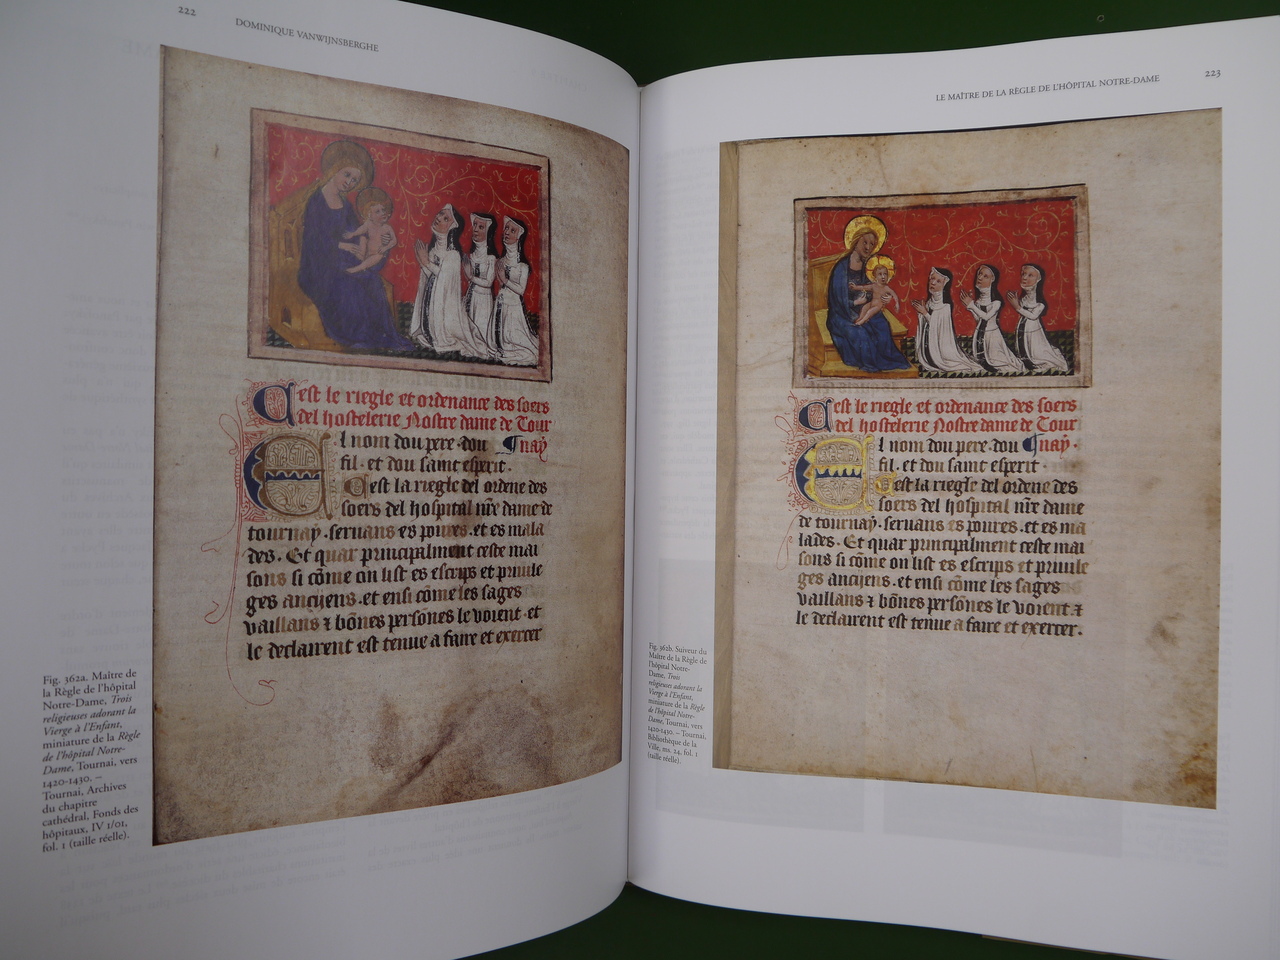 222
DOMINIQUE VANWIJNSBERGHE
Cest le riegle et ordenance des soers
del hostelerie Nostre dame de Tour
nay
El nom dou pere · dou
fil · et dou saint esperit ·
Cest la riegle del ordene des
soers del hospital nr̄e dame de
tournay · seruans es poures · et es mala
des · Et quar principalment ceste mai
sons si cōme on list es escrips et priuile
ges anciiens · et ensi cōme les sages
vaillans ⁊ bōnes persōnes le voient · et
le declairent est tenue a faire et exercer
Fig. 362a. Maître de
la Règle de l'hôpital
Notre-Dame, Trois
religieuses adorant la
Vierge à l'Enfant,
miniature de la Règle
de l'hôpital Notre-
Dame, Tournai, vers
1420-1430. –
Tournai, Archives
du chapitre
cathédral, Fonds des
hôpitaux, IV 1/01,
fol. 1 (taille réelle).
LE MAÎTRE DE LA RÈGLE DE L'HÔPITAL NOTRE-DAME
223
Cest le riegle et ordenance des soers
del hostelerie Nostre dame de Tour
nay ·
El nom dou pere · dou
fil · et dou saint esperit ·
Cest la riegle del ordene des
soers del hospital nr̄e dame
de tournay · seruans es poures · et es ma
lades · Et quar principalment ceste mai
sons si cōme on list es escrips et priuile
ges anciiens · et ensi cōme les sages
vaillans ⁊ bōnes persōnes le voient · ⁊
le declairent est tenue a faire et exercer ·
Fig. 362b. Suiveur du
Maître de la Règle de
l'hôpital Notre-
Dame, Trois
religieuses adorant la
Vierge à l'Enfant,
miniature de la Règle
de l'hôpital Notre-
Dame, Tournai, vers
1420-1430. – Tournai,
Bibliothèque de la
Ville, ms. 24, fol. 1
(taille réelle).